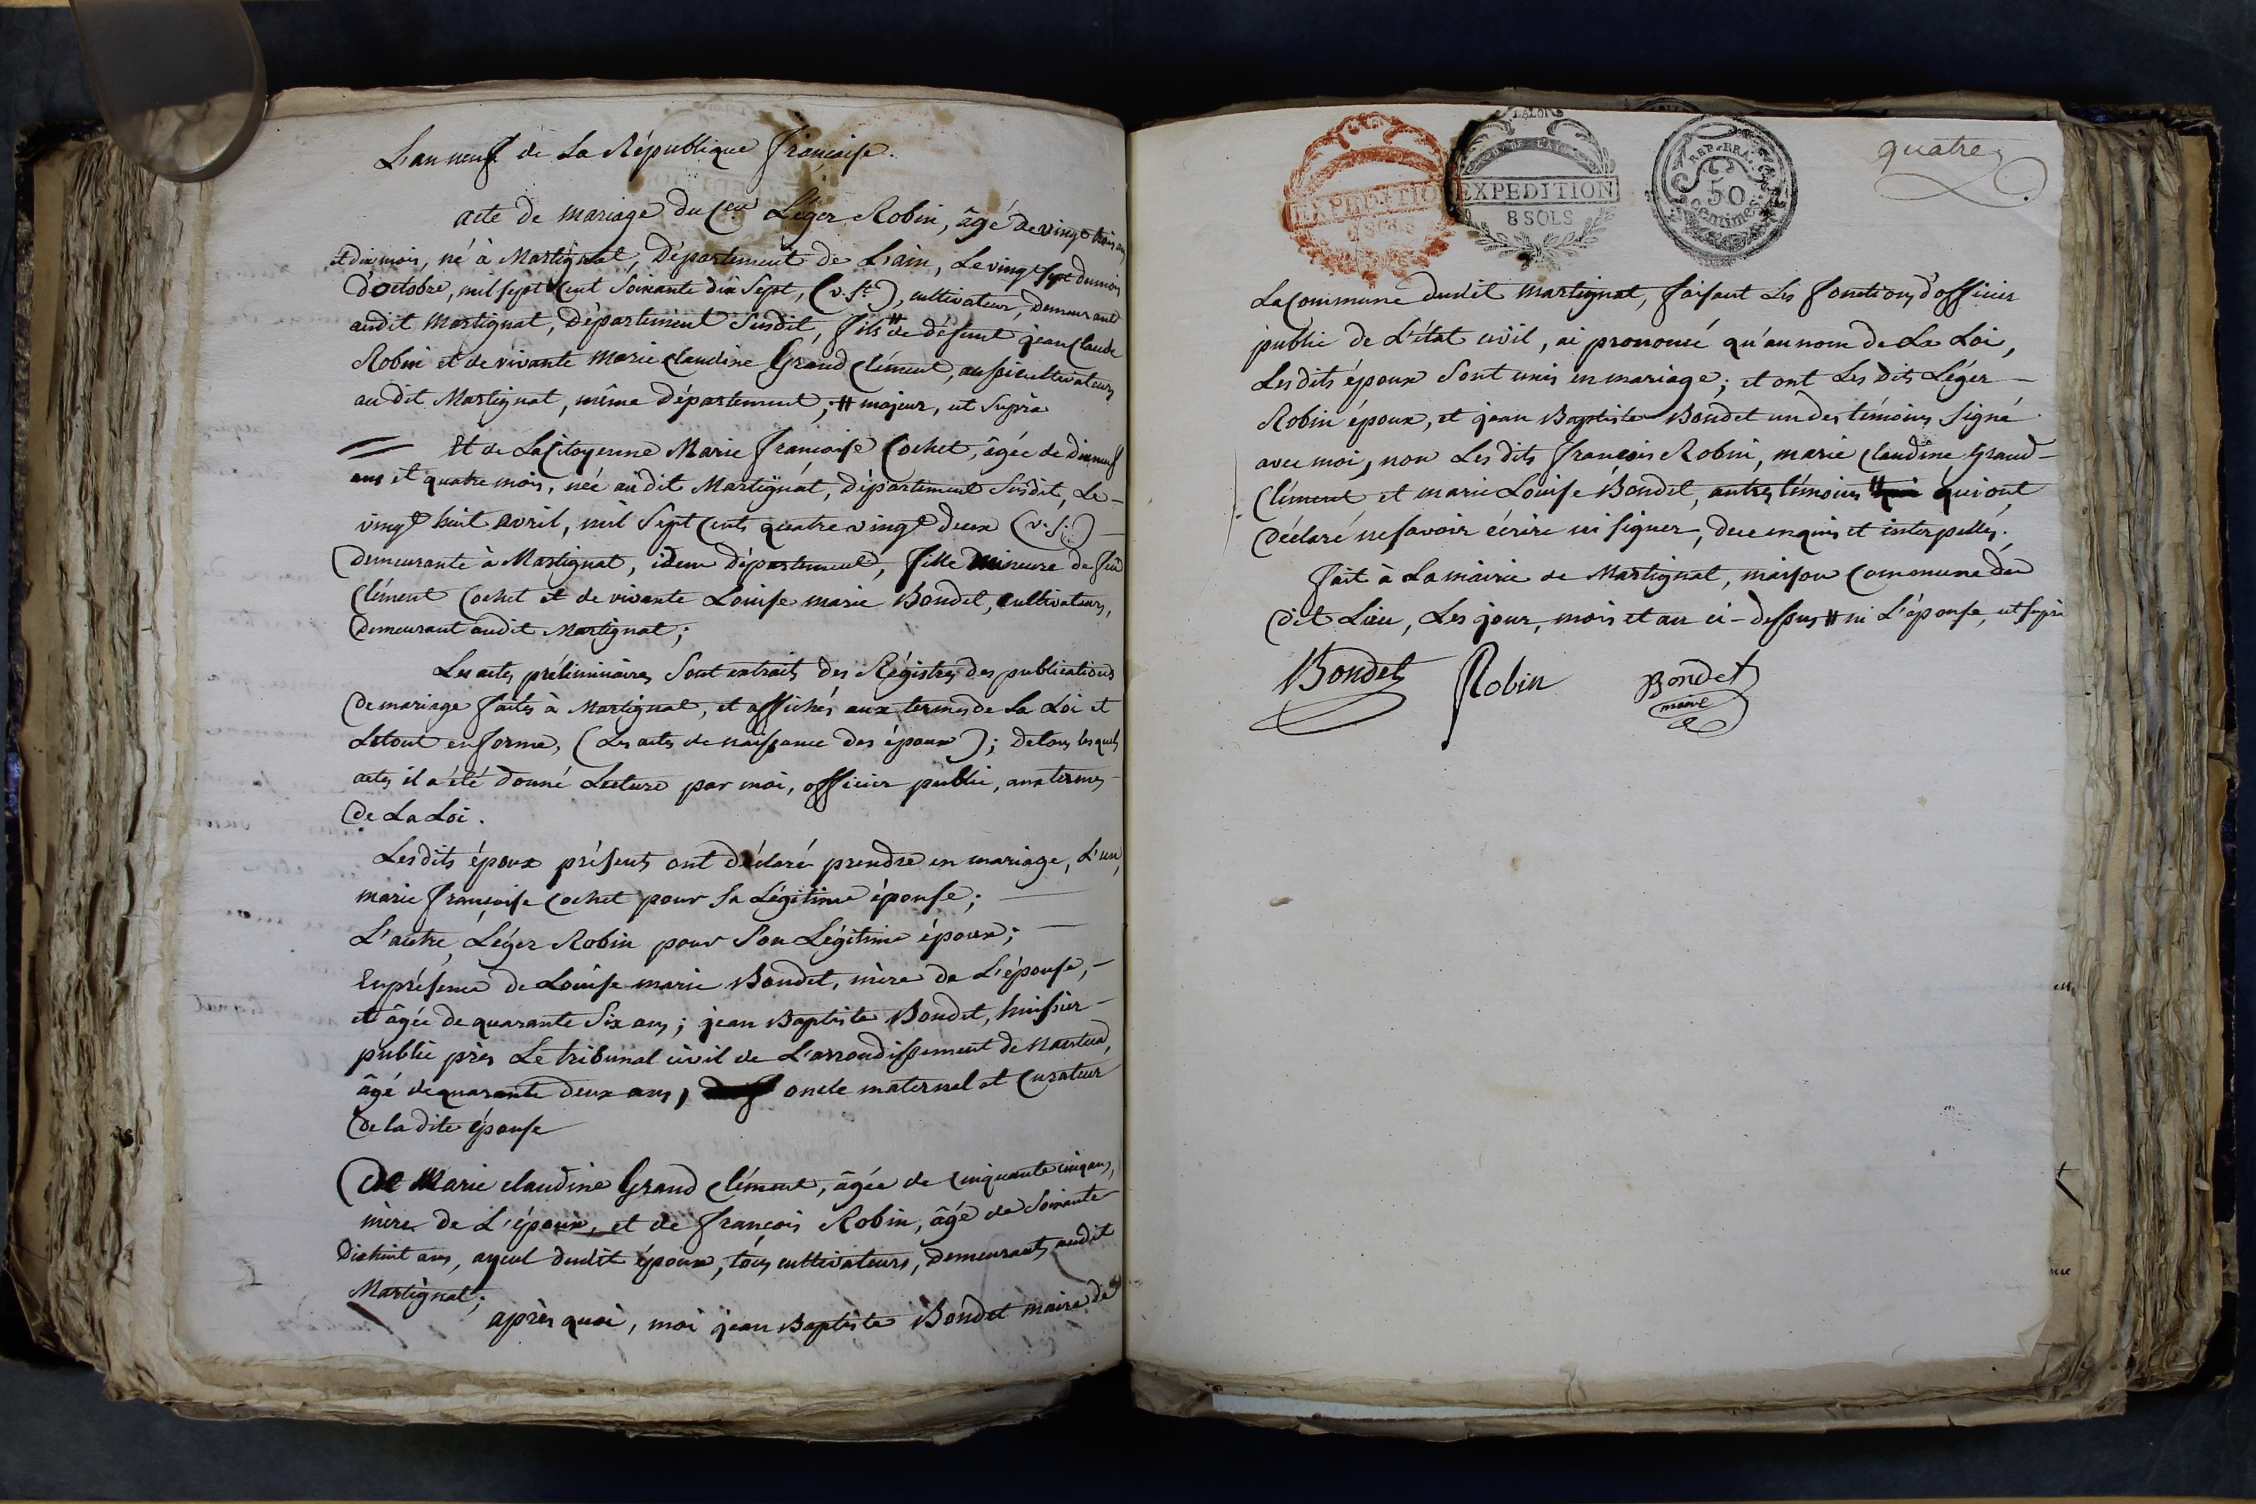 L'an neuf de La République françoise.
acte de mariage du Cen Léger Robin, âgé de vingt trois ans
et dix mois, né à Martignat, Département de L'ain, Le vingt sept du mois
D'octobre, mil sept cent soixante dix sept, (v. st.), cultivateur, Demeurant
audit Martignat, Département susdit, fils # de défunt jean Claude
Robin et de vivante Marie Claudine Grand Clément, aussi cultivateurs
audit Martignat, même Département; # majeur, ut suprà
Et de La Citoyenne Marie françoise Cochet, âgée de dix neuf
ans et quatre mois, née audit Martignat, Département susdit, Le
vingt huit avril, mil sept cents quatre vingt deux (v. s.)
Demeurante à Martignat, idem Département, fille mineure de feu
Clément Cochet et de vivante Louise marie Bondet, cultivateurs,
Demeurant audit Martignat;
Les actes préliminaires sont extraits des Régistres des publications
De mariage faites à Martignat, et affichés aux termes de La Loi et
Letout en forme, (Les actes de naissance des époux); De tous lesquels
actes il a été donné Lecture par moi, officier public, aux termes
De La Loi.
Lesdits époux présents ont déclaré prendre en mariage, L'un,
marie françoise Cochet pour sa Légitime épouse;
L'autre, Léger Robin pour son Légitime époux;
En présence de Louise marie Bondet, mère de L'épouse,
et âgée de quarante six ans; jean Baptiste Bondet, huissier
public près Le tribunal civil de L'arrondissement de Nantua,
âgé de quarante deux ans, oncle maternel et Curateur
De la dite épouse
De Marie claudine Grand Clément, âgée de Cinquante cinq ans,
mère de L'époux, et de françois Robin, âgé de soixante
Dix huit ans, ayeul dudit époux, tous cultivateurs, Demeurants audit
Martignat;
après quoi, moi jean Baptiste Bondet maire de
quatre
EXPEDITION
8 SOLS
EXPEDITION
8 SOLS
REP. FRA.
50
Centimes
La Commune dudit Martignat, faisant Les fonctions d'officier
public de L'état civil, ai prononcé qu'au nom de La Loi,
Lesdits époux sont unis en mariage; et ont Les dits Léger
Robin époux, et jean Baptiste Bondet un des témoins signé
avec moi, non Les dits françois Robin, marie Claudine Grand
Clément et marie Louise Bondet, autres témoins # qui ont
Déclaré ne savoir écrire ni signer, de ce enquis et interpellés.
fait à La mairie de Martignat, maison Commune du
dit Lieu, Les jour, mois et an ci-dessus # ni L'épouse, ut suprà
Bondet Robin Bondet
maire